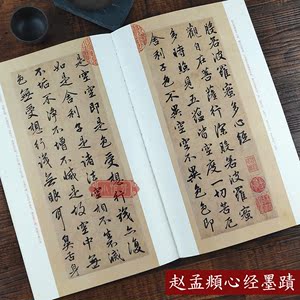 般若波羅蜜多心經
觀自在菩薩行深般若波羅蜜
多時照見五蘊皆空度一切苦厄
舍利子色不異空空不異色色即
是空空即是色受想行識亦復
如是舍利子是諸法空相不生不滅
不垢不淨不增不減是故空中無
色無受想行識無眼耳鼻舌身
赵孟頫心经墨蹟